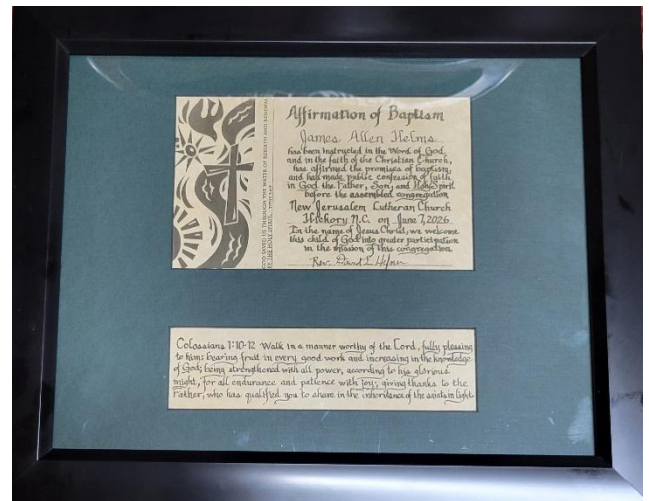 GOD SAVED US THROUGH THE WATER OF REBIRTH AND RENEWAL
BY THE HOLY SPIRIT.
Affirmation of Baptism
James Allen Helms
has been instructed in the Word of God
and in the faith of the Christian Church,
has affirmed the promises of baptism,
and has made public confession of faith
in God the Father, Son, and Holy Spirit
before the assembled congregation
New Jerusalem Lutheran Church
Hickory N.C. on June 7, 2026
In the name of Jesus Christ, we welcome
this child of God into greater participation
in the mission of this congregation.
Rev. David L
Colossians 1:10-12 Walk in a manner worthy of the Lord, fully pleasing
to him: bearing fruit in every good work and increasing in the knowledge
of God; being strengthened with all power, according to his glorious
might, for all endurance and patience with joy; giving thanks to the
Father, who has qualified you to share in the inheritance of the saints in light.